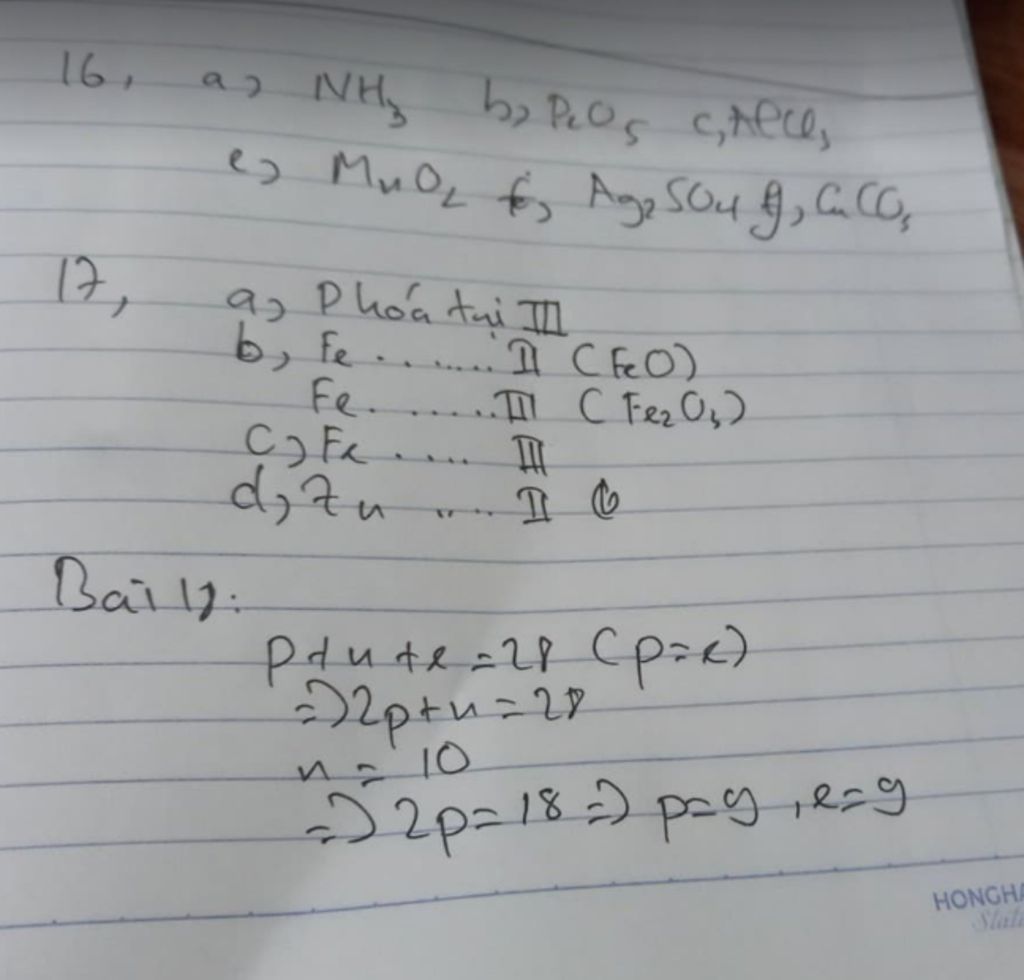 16, a, NH3 b, P2O5 c, AlCl3
e, MnO2 f, Ag2SO4 g, CaCO3
17, a, P hoá trị III
b, Fe ........ II (FeO)
Fe ........ III (Fe2O3)
c, Fe ..... III
d, Zn ..... II
Bài 1:
p+n+e=28 (p=e)
=> 2p+n=28
n = 10
=> 2p=18 => p=9, e=9
HONGHA